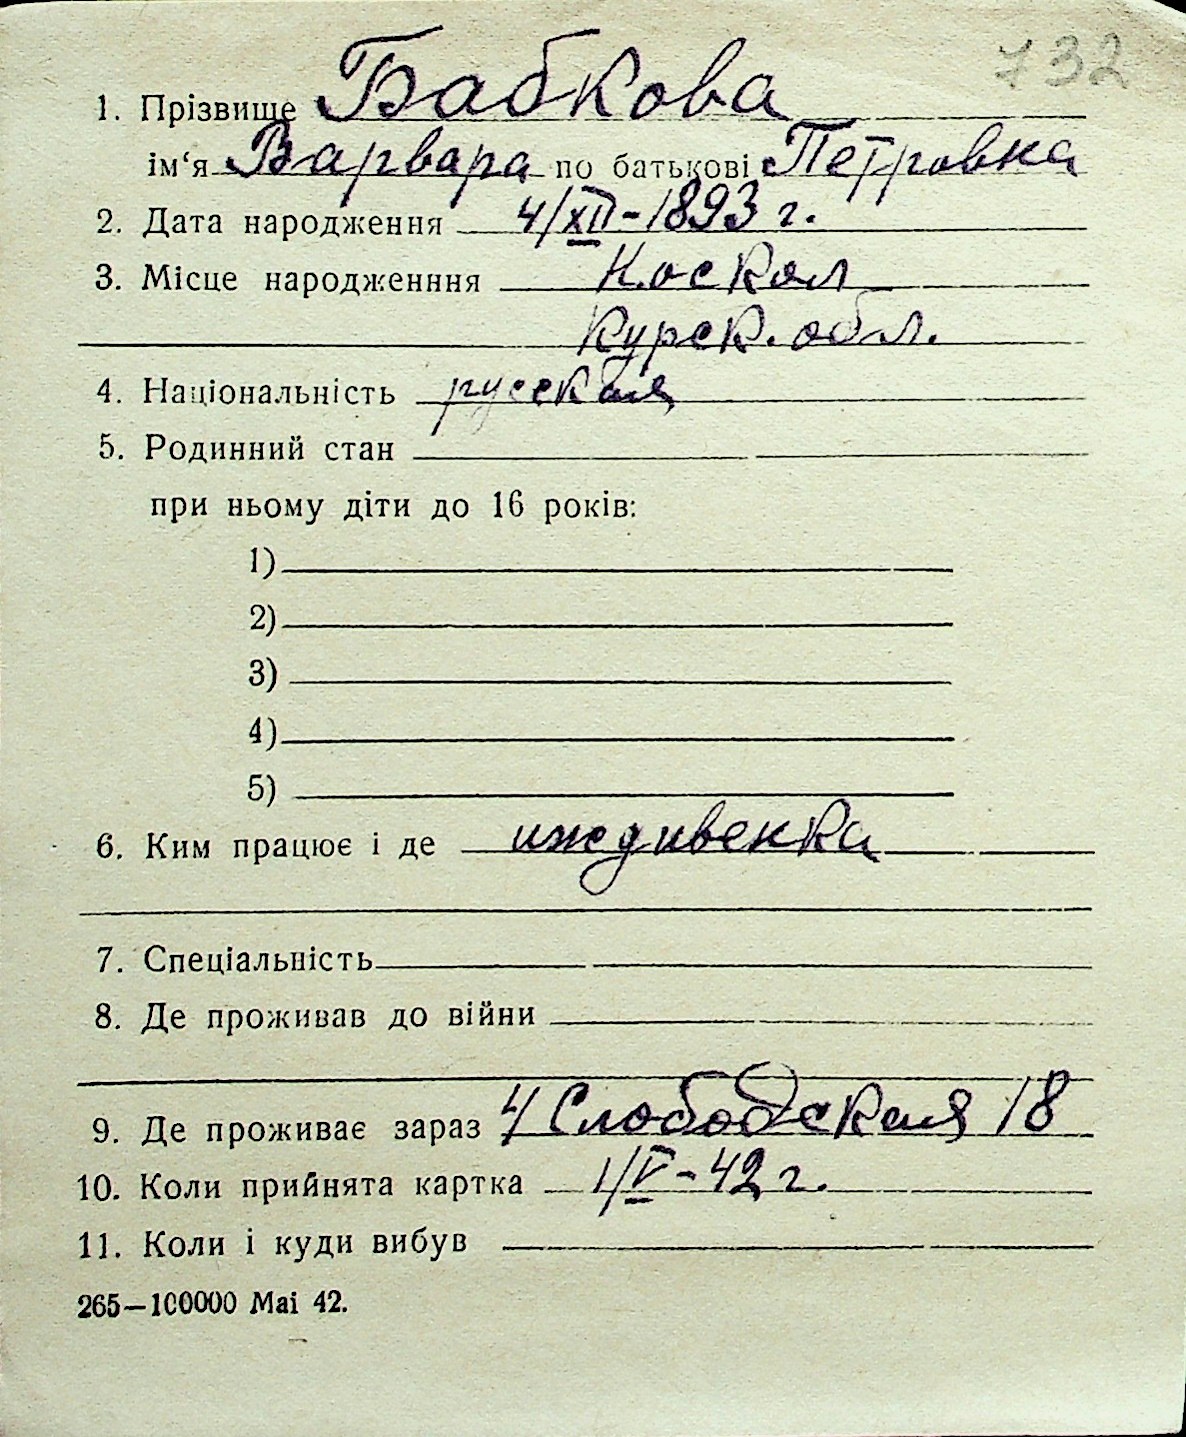 732
1. Прізвище Бабкова
ім‘я Варвара по батькові Петровна
2. Дата народження 4/XII-1893 г.
3. Місце народженння Н.оскол
Курск. обл.
4. Національність русская
5. Родинний стан
при ньому діти до 16 років:
1)
2)
3)
4)
5)
6. Ким працює і де иждивенка
7. Спеціальність
8. Де проживав до війни
9. Де проживає зараз 4 Слободская 18
10. Коли прийнята картка 1/V-42 г.
11. Коли і куди вибув
265—100000 Mai 42.